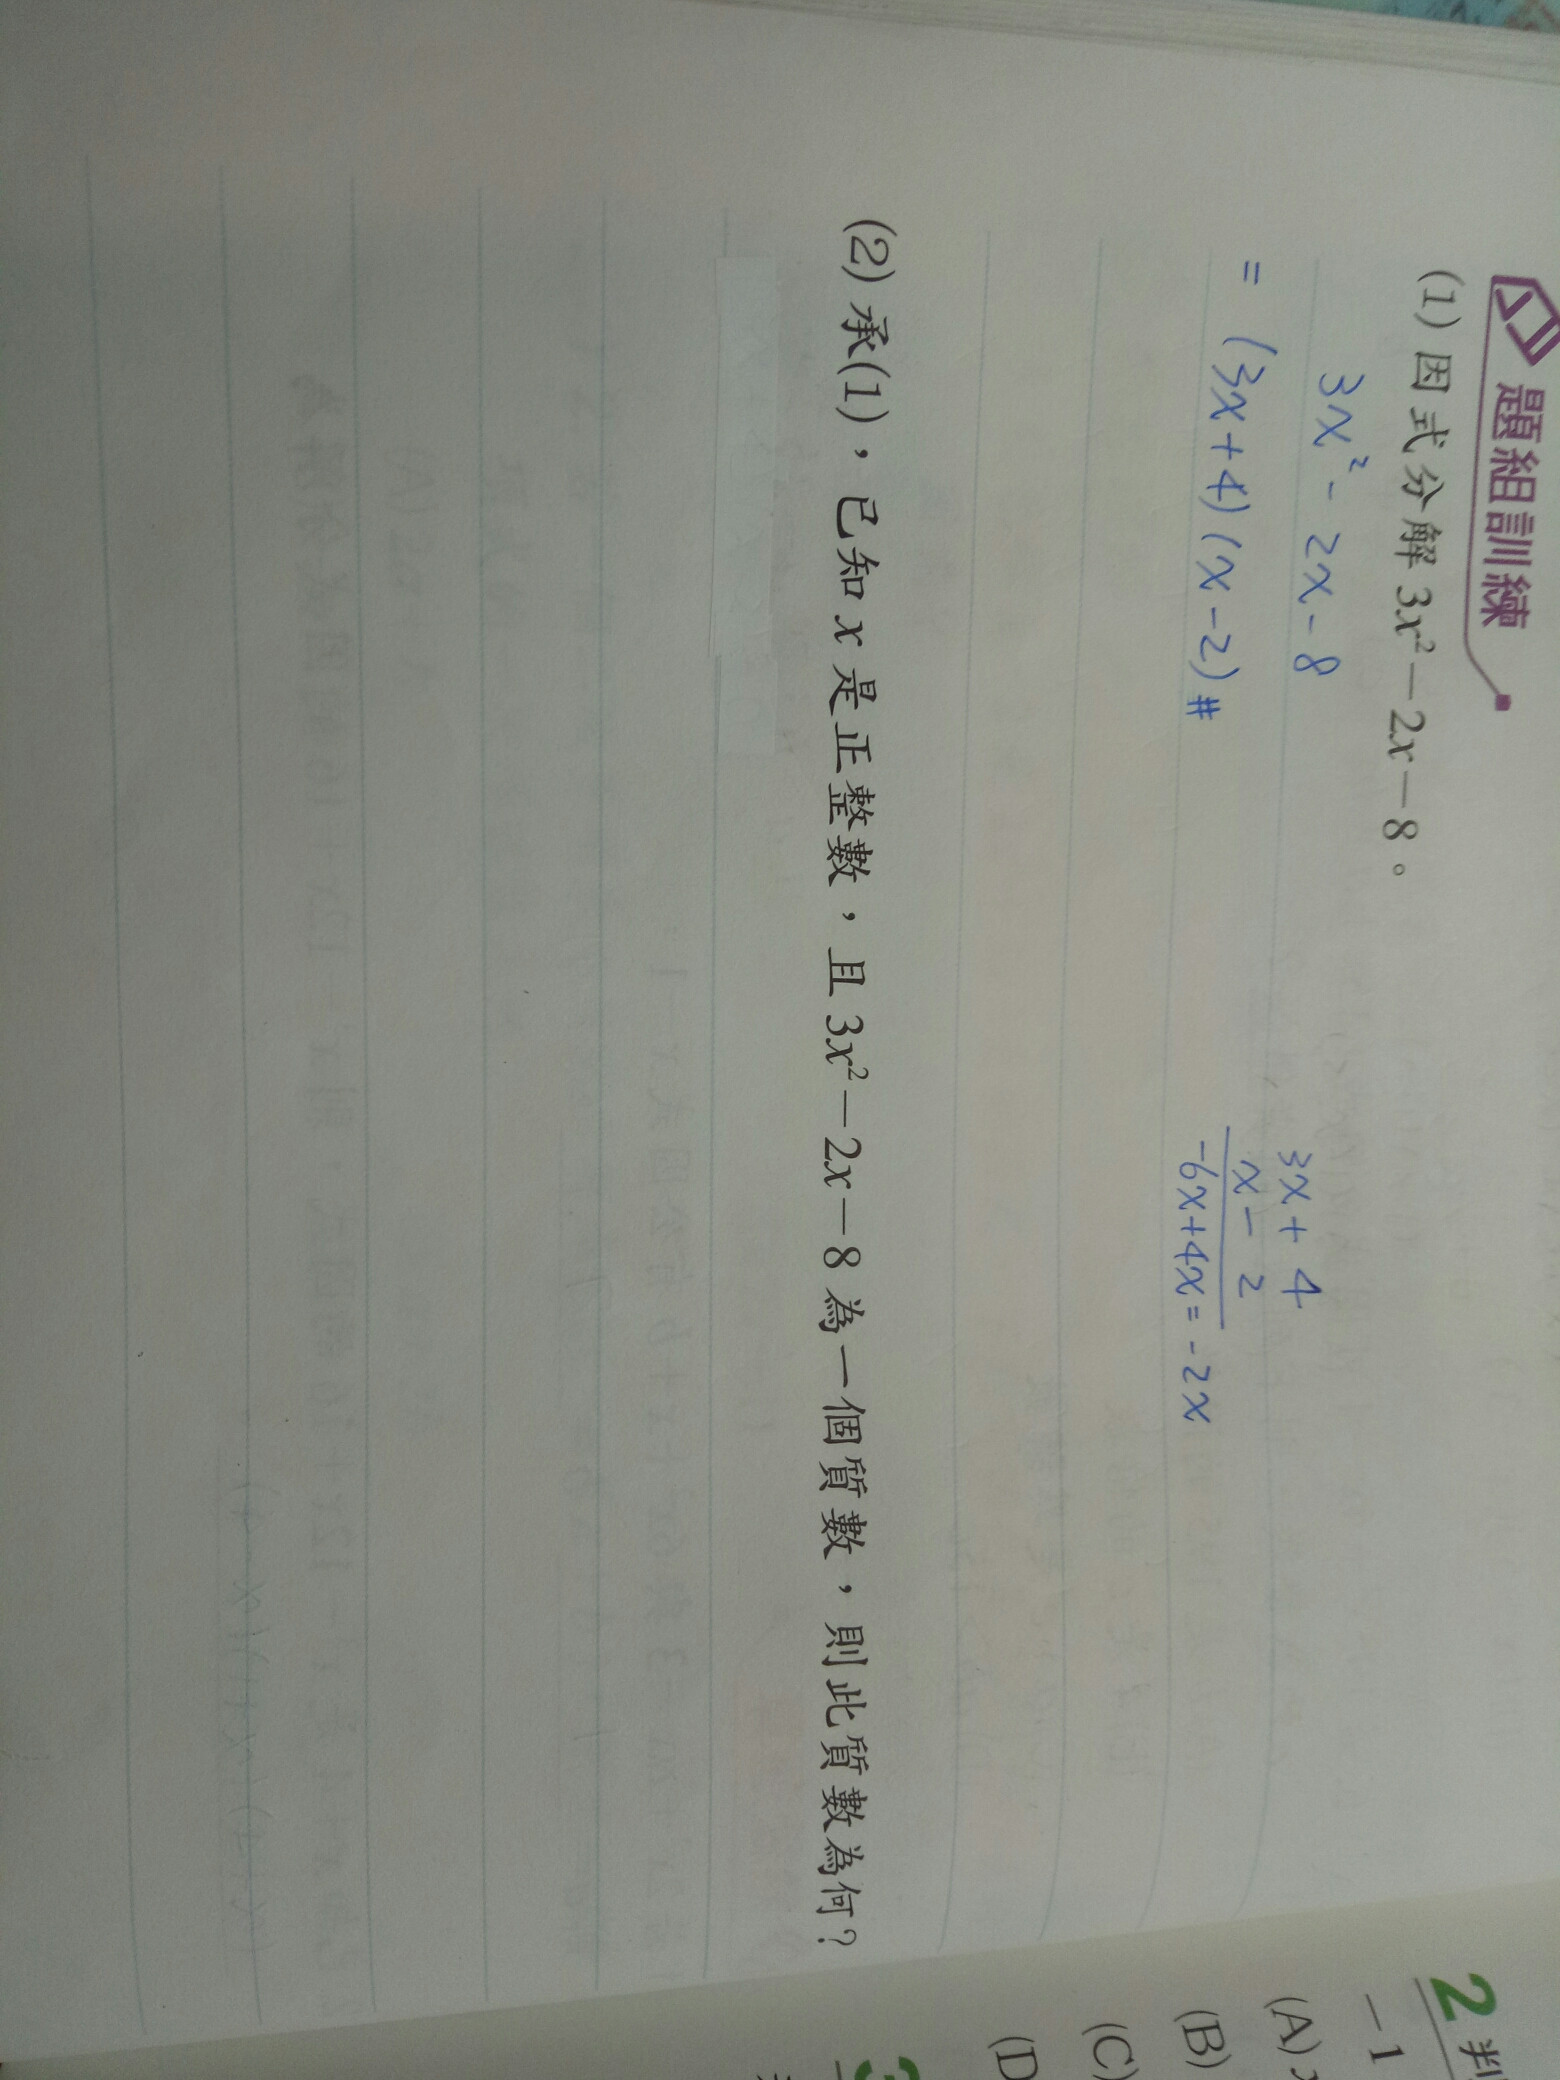 題組訓練
(1) 因式分解 3x²－2x－8。
3x² - 2x - 8
= (3x+4)(x-2)#
3x + 4
x - 2
-6x+4x = -2x
(2) 承(1)，已知 x 是正整數，且 3x²－2x－8 為一個質數，則此質數為何？
2 判
－1
(A) x
(B)
(C)
(D
3